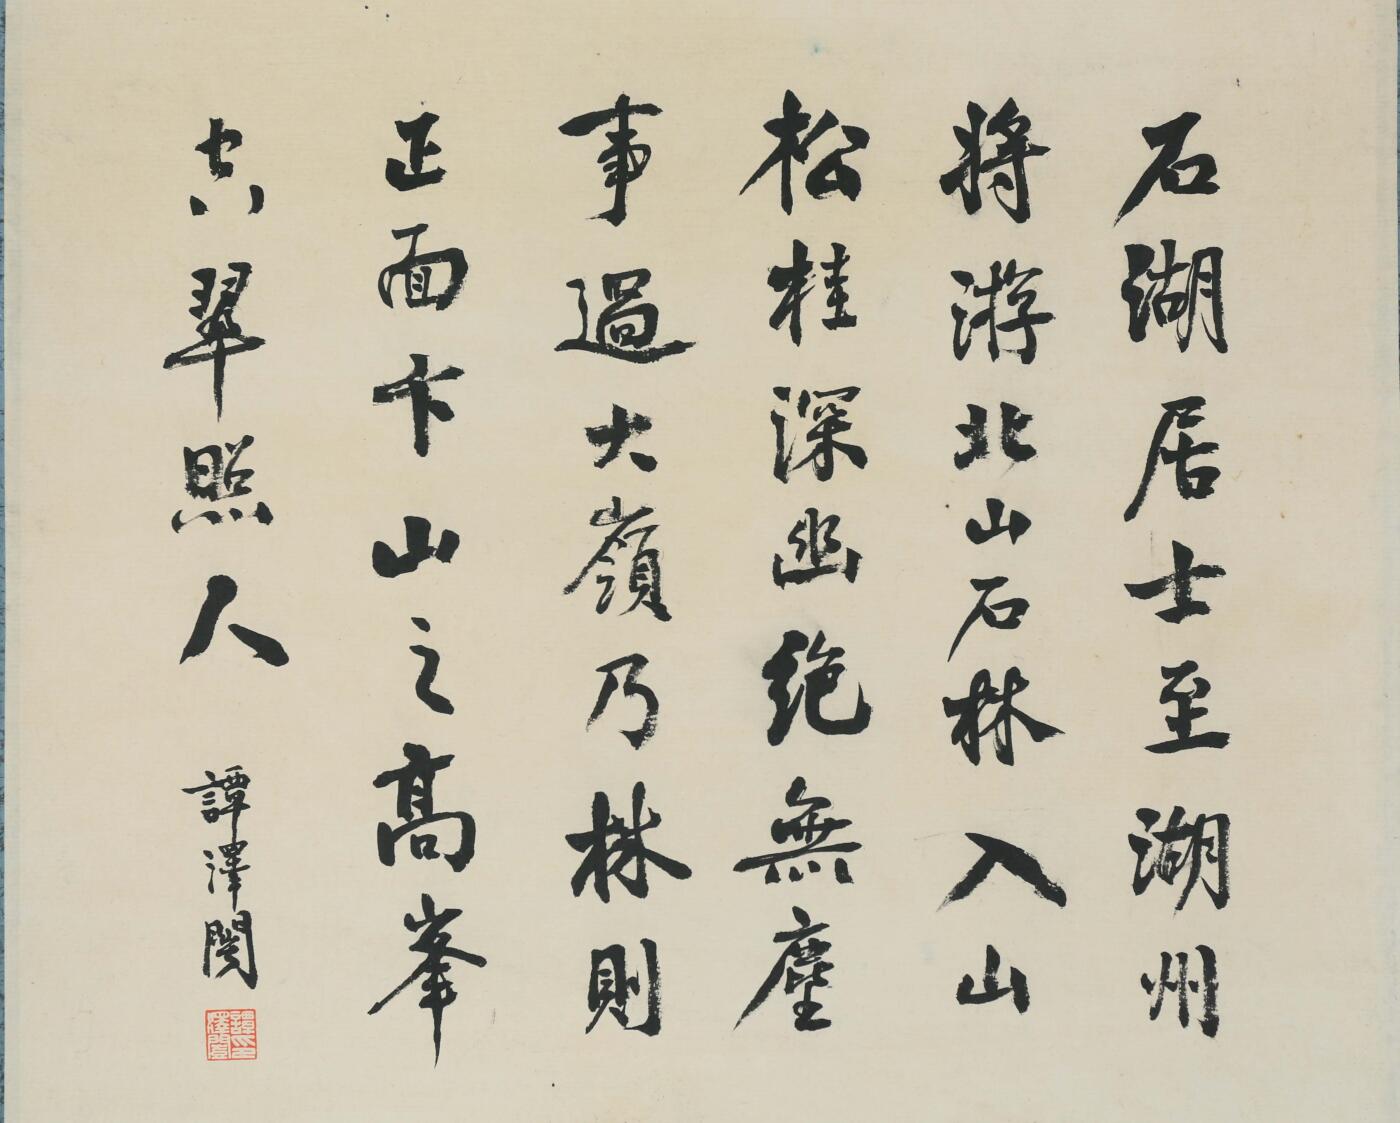 石湖居士至湖州
將游北山石林入山
松桂深幽絕無塵
事過大嶺乃林則
正面卞山之高峯
空翠照人
譚澤闓
譚澤闓印